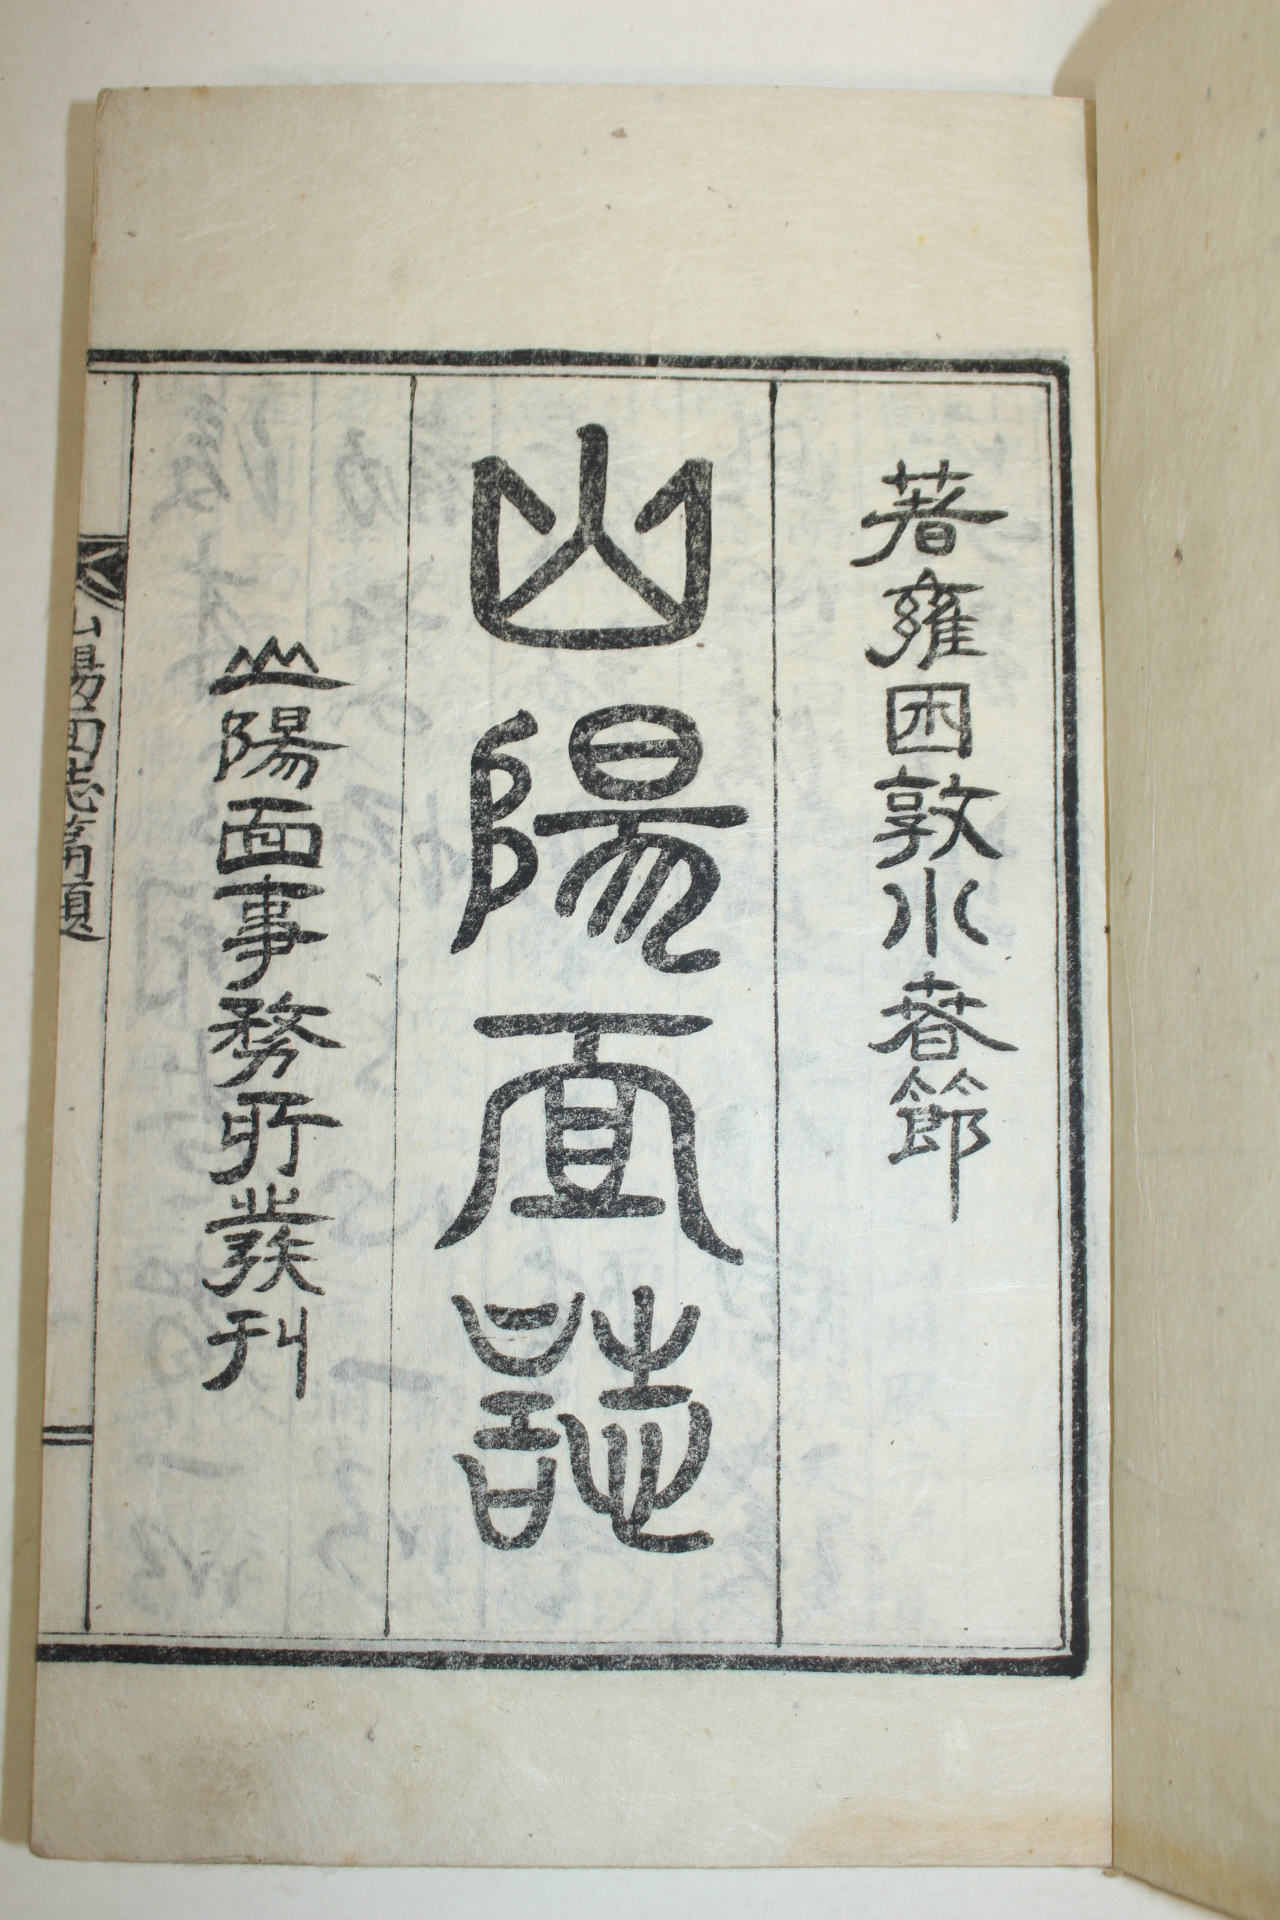 著雍困敦小春節
山陽面誌
山陽面事務所發刊
山陽面誌篇題